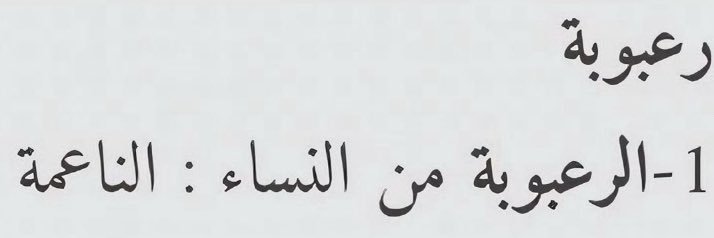 رعبوبة
1-الرعبوبة من النساء : الناعمة